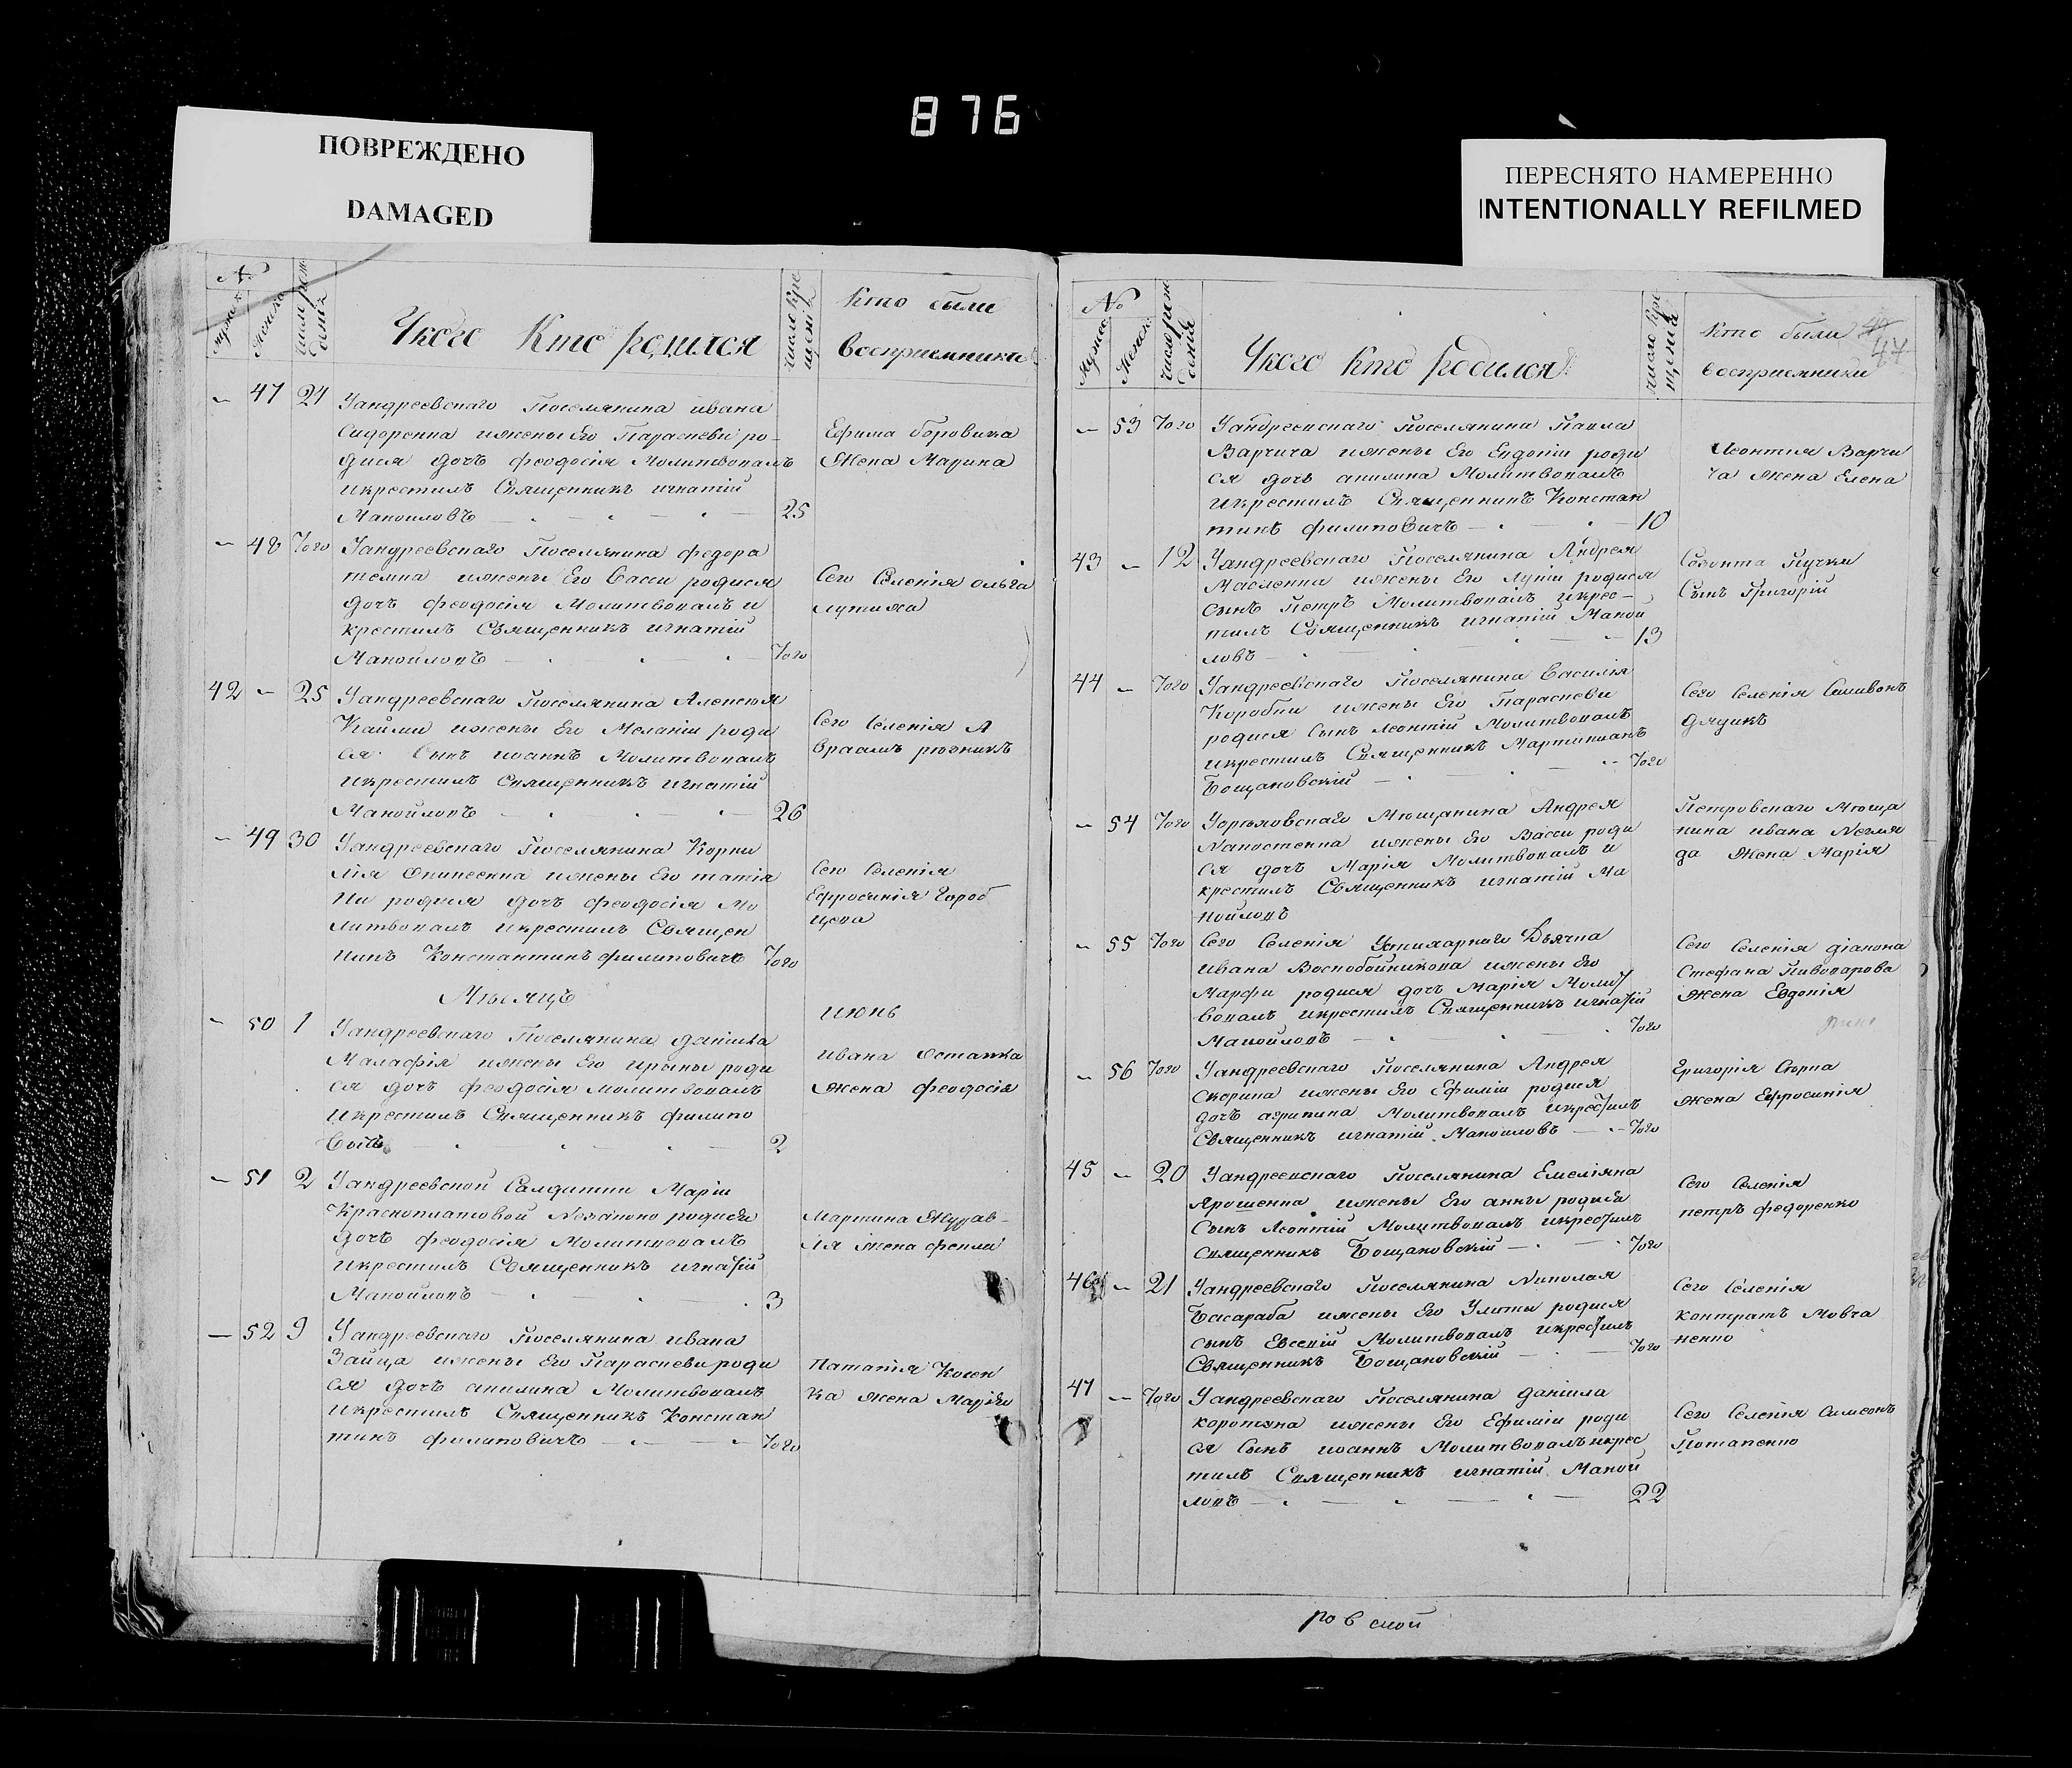 876
ПОВРЕЖДЕНО
DAMAGED
ПЕРЕСНЯТО НАМЕРЕННО
INTENTIONALLY REFILMED
№
мужеска
женска
число рож
дения
Укого Кто родился
число кре
щения
кто были
восприемники
47 24 Уандреевскаго Поселянина ивана
Сидоренка ижены Его Параскеви ро-
дися дочь феодосія Молитвовалъ
икрестилъ Священникъ игнатій
Манойловъ 25
Ефима боровика
Жена Марина
48 Того Уандреевскаго Поселянина федора
ижены Его Васси родися
дочь феодосія Молитвовалъ и
крестилъ Священникъ игнатій
Манойловъ Того
Сего Селенія ольга
42 25 Уандреевскаго Поселянина Алексея
Каймы ижены Его Меланіи роди
ся Сынъ иоаннъ Молитвовалъ
икрестилъ Священникъ игнатій
Манойловъ 26
Сего Селенія А
враамъ
49 30 Уандреевскаго Поселянина Корни
лія ижены Его татія
ни родися дочь феодосія Мо
литвовалъ икрестилъ Священ
никъ Константинъ филиповичъ Того
Сего Селенія
Ефросинія Город
цева
Мѣсяцъ
июнь
50 1 Уандреевскаго Поселянина даніила
Малафія ижены Его ирыны роди
ся дочь феодосія молитвовалъ
икрестилъ Священникъ филипо
вичъ 2
ивана Остапка
жена феодосія
51 2 Уандреевской Салдатки Маріи
родися
дочь феодосія Молитвовалъ
икрестилъ Священникъ игнатій
Манойловъ 3
Мартина Журав-
ля жена фекла
52 9 Уандреевскаго Поселянина ивана
Зайца ижены Его Параскеви роди
ся дочь акилина Молитвовалъ
икрестилъ Священникъ Констан
тинъ филиповичъ Того
ка жена Марія
№
Мужеск
Женск
число рож
дения
Укого Кто Родился
число кре
щения
кто были
восприемники
47
53 Того Уандреевскаго Поселянина Павла
Варчича ижены Его Евдокіи роди
ся дочь акилина Молитвовалъ
икрестилъ Священникъ Констан
тинъ филиповичъ 10
Леонтия Варчи
ча Жена Елена
43 12 Уандреевскаго Поселянина Андрея
Масленка ижены Его родися
сынъ Петръ Молитвовалъ икрес-
тилъ Священникъ игнатій Маной
ловъ 13
Созонта Пучки
Сынъ Григорій
44 Того Уандреевскаго Поселянина Василія
Коробки ижены Его Параскеви
родися Сынъ Леонтій Молитвовалъ
икрестилъ Священникъ Мартиниянъ
Бощановскій Того
Сего Селенія Селивонъ
дядикъ
54 Того Мющанина Андрея
ижены Его Васси роди
ся дочь Марія Молитвовалъ и
крестилъ Священникъ игнатій Ма
нойловъ
Петровскаго Мюща
нина ивана
да Жена Марія
55 Того Сего Селенія Дьячка
ивана Воскобойникова ижены Его
Марфи родися дочь Марія Молит
вовалъ икрестилъ Священникъ игнатій
Манойловъ Того
Сего Селенія діакона
Стефана Пивоварова
жена Евдокія
56 Того Уандреевскаго Поселянина Андрея
Скорика ижены Его Ефиміи родися
дочь агрипина Молитвовалъ икрестилъ
Священникъ игнатій Манойловъ Того
Григорія
жена Ефросинія
45 20 Уандреевскаго Поселянина Емеліяна
Ярошенка ижены Его анны родися
Сынъ Леонтій Молитвовалъ икрестилъ
священникъ Бощановскій Того
Сего Селенія
петръ федоренко
46 21 Уандреевскаго Поселянина Николая
Басараба ижены Его Улиты родися
сынъ Евсевій Молитвовалъ икрестилъ
Священникъ Бощановскій Того
Сего Селенія
контратъ Мовча
ненко
47 Того Уандреевскаго Поселянина даніила
ижены Его Ефиміи роди
ся Сынъ иоаннъ Молитвовалъ икрес
тилъ Священникъ игнатій Маной
ловъ 22
Сего Селенія Симеонъ
Потапенко
ровской